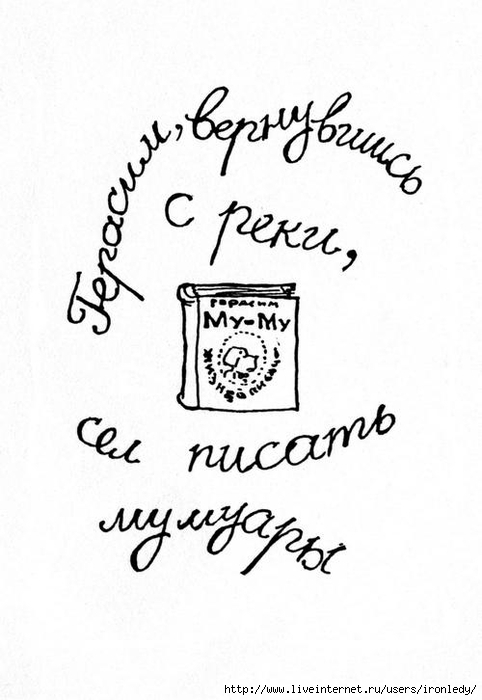 Герасим, вернувшись
с реки,
Герасим
Му-Му
жизнеописание
сел писать
мумуары
http://www.liveinternet.ru/users/ironledy/